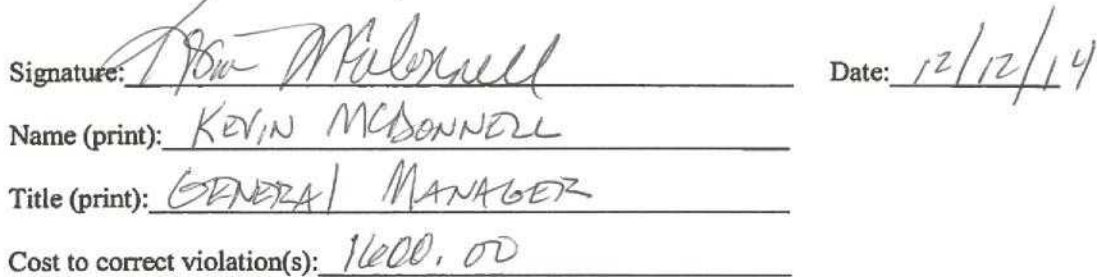 Signature: Kevin McDonnell Date: 12/12/14
Name (print): KEVIN MCDONNELL
Title (print): GENERAL MANAGER
Cost to correct violation(s): 1600.00